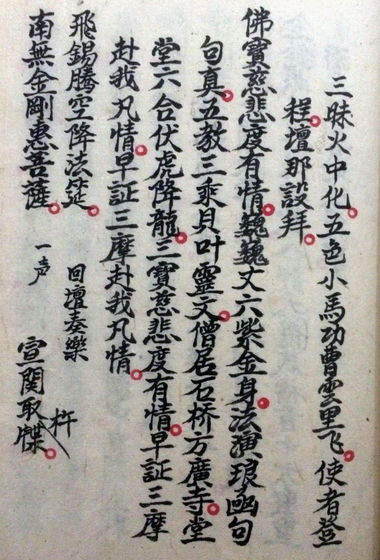 三昧火中化。五色小馬功曹雲里飞。使者登
程。壇那設拜。
佛寳慈悲度有情。巍巍丈六紫金身。法演琅凾句
句真。五教三乘貝叶靈文。僧居石桥方廣寺。堂
堂六合伏虎降龍。三寳慈悲度有情。早証三摩
赴我凡情。早証三摩赴我凡情。
飛錫騰空降法莚。
南無金剛惠菩薩。
一声
回壇奏樂
宣関取牒。